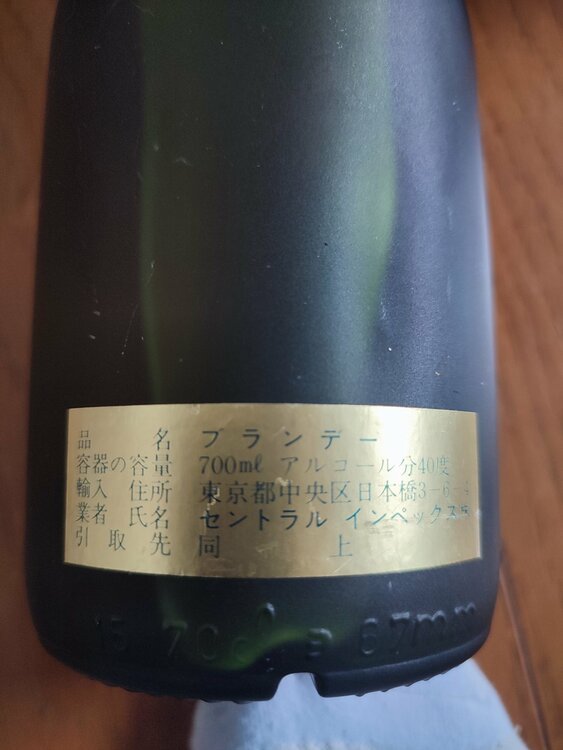 品名 ブランデー
容器の容量 700ml アルコール分40度
輸入 住所 東京都中央区日本橋3-6-
業者 氏名 セントラル インペックス
引取先 同上
70cl 67mm